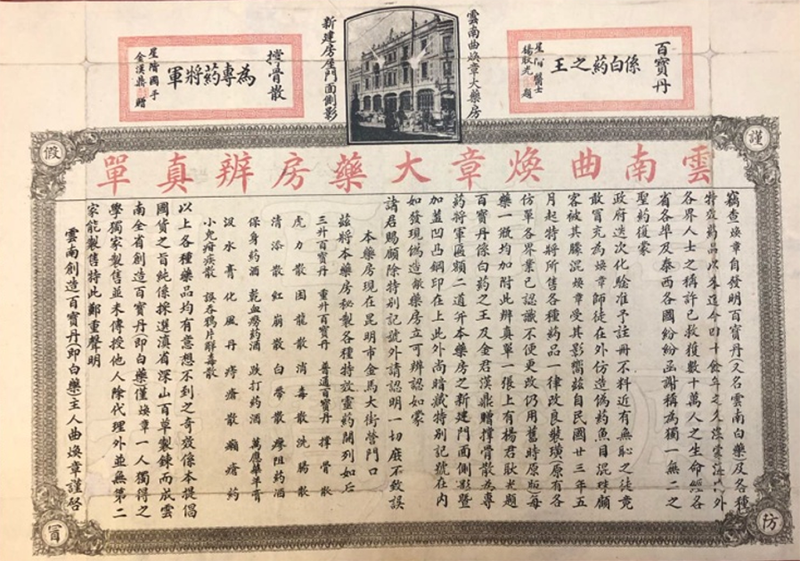 雲南曲煥章大藥房
新建房屋門面側影
百寶丹
係白藥之王
星洲醫士
楊耿光題
撐骨散
為專藥將軍
星洲國手
金漢鼎贈
謹
防
假
冒
雲南曲煥章大藥房辨真單
竊查煥章自發明百寶丹(又名雲南白藥)及各種
特效藥品以來迄今四十餘年之久
各界人士之稱許已救獲數十萬人之生命經各
省各埠及泰西各國紛紛函謝稱為獨一無二之
聖藥復蒙
政府迭次化驗准予註冊不料近有無恥之徒竟
敢冒充為煥章師徒在外仿造偽藥魚目混珠顧
客被其矇混煥章受其影響茲自民國廿三年五
月起特將所售各種藥品一律改良製璜原有各
仿單各界業已認識不便更改仍用舊時原版每
藥一概均加附此辨真單一張上有楊君耿光題
百寶丹係白藥之王及金君漢鼎贈撐骨散為專
藥將軍匾額二道并本藥房之新建門面側影暨
加蓋凹凸鋼印在上此外尚暗藏特別記號在內
如發現偽造敝藥房立可辨認如蒙
請君賜顧除特別記號外請認明一切庶不致誤
本藥房現在昆明市金馬大街營門口
茲將本藥房秘製各種特效靈藥開列如后
三升百寶丹 重升百寶丹 普通百寶丹 撐骨散
虎力散 困龍散 消毒散 洗腸散
清添散 紅崩散 白帶散 瘰阻藥酒
保身藥酒 乾血癆藥酒 跌打藥酒 萬應藥羊膏
汲水膏 化風丹 痔瘡散 癩瘡藥
小兒疳疾散 誤吞鴉片解毒散
以上各種藥品均有意想不到之奇效係本提倡
國貨之旨純係採選滇省深山百草製鍊而成雲
南全省創造百寶丹即白藥僅煥章一人獨得之
學獨家製售並未傳授他人除代理外並無第二
家能製售特此鄭重聲明
雲南創造百寶丹(即白藥)主人曲煥章謹啓